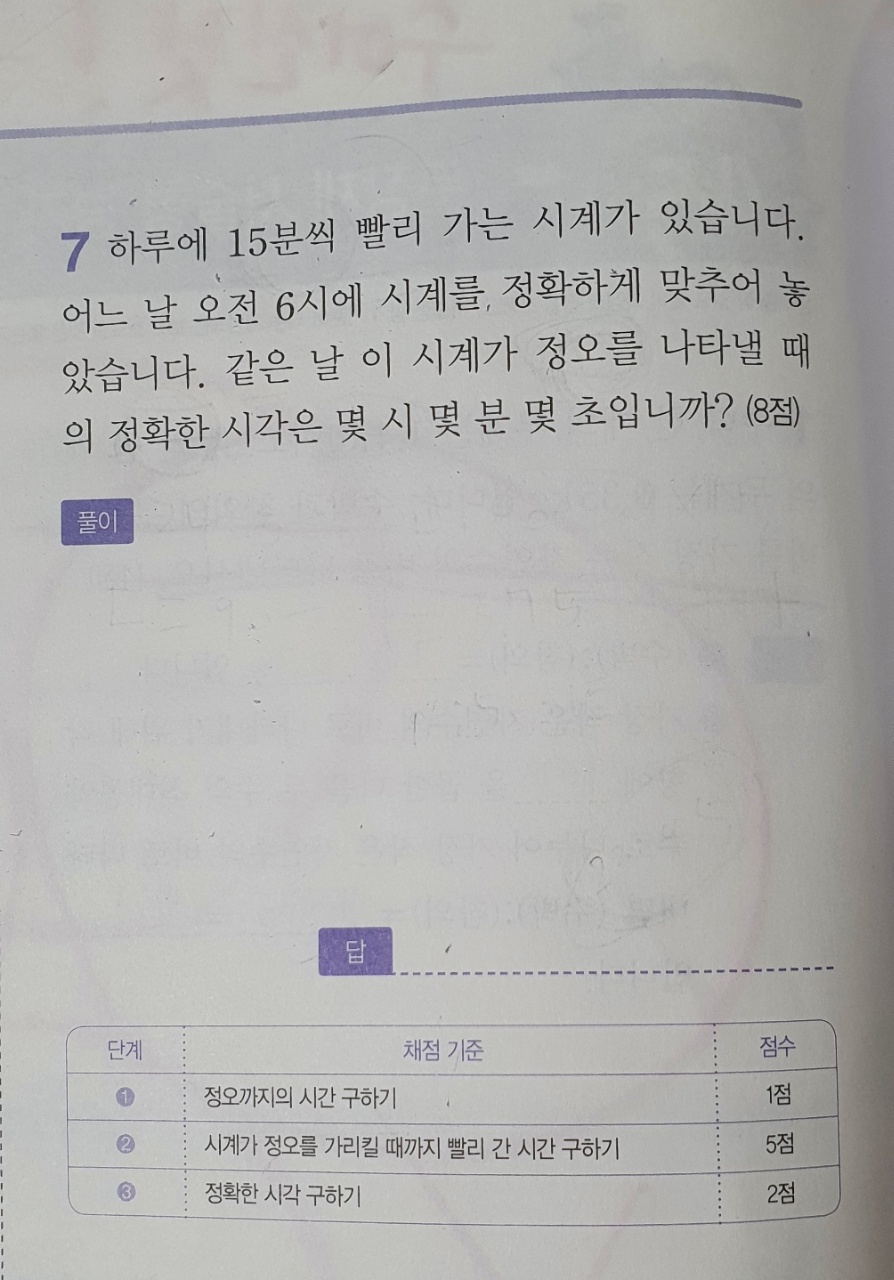 7 하루에 15분씩 빨리 가는 시계가 있습니다.
어느 날 오전 6시에 시계를 정확하게 맞추어 놓
았습니다. 같은 날 이 시계가 정오를 나타낼 때
의 정확한 시각은 몇 시 몇 분 몇 초입니까? (8점)
풀이
답
단계 채점 기준 점수
① 정오까지의 시간 구하기 1점
② 시계가 정오를 가리킬 때까지 빨리 간 시간 구하기 5점
③ 정확한 시각 구하기 2점